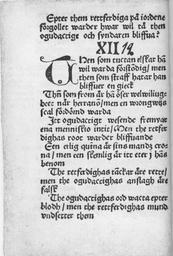 Epter them rettferdiga på iordene
forgollet warder hwar wil tå then
ogudactige och syndaren bliffua?
XII
HEn som tuctan elskar hā
wil warda forstōdig/ men
then som straff hatar han
bliffuer en gieck
Thň som from är hā ōfver
heet när herranō/ men en wrongwijs
scal fordōmd warda
Jtt ogudactigt wesende fremyar
ena menniskio intit/ Men the rettfer
dighas root warder bliffuande
Een erlig quina är sins mandz cro
na/ men een skemlig är itt eter j hās
benom
The rettferdighas tāckar äre rette/
men the ogudactighas anslagh äre
falsk
The ogudactighas ord wacta epter
blodh/ men the rettferdighas mund
vndsetter them